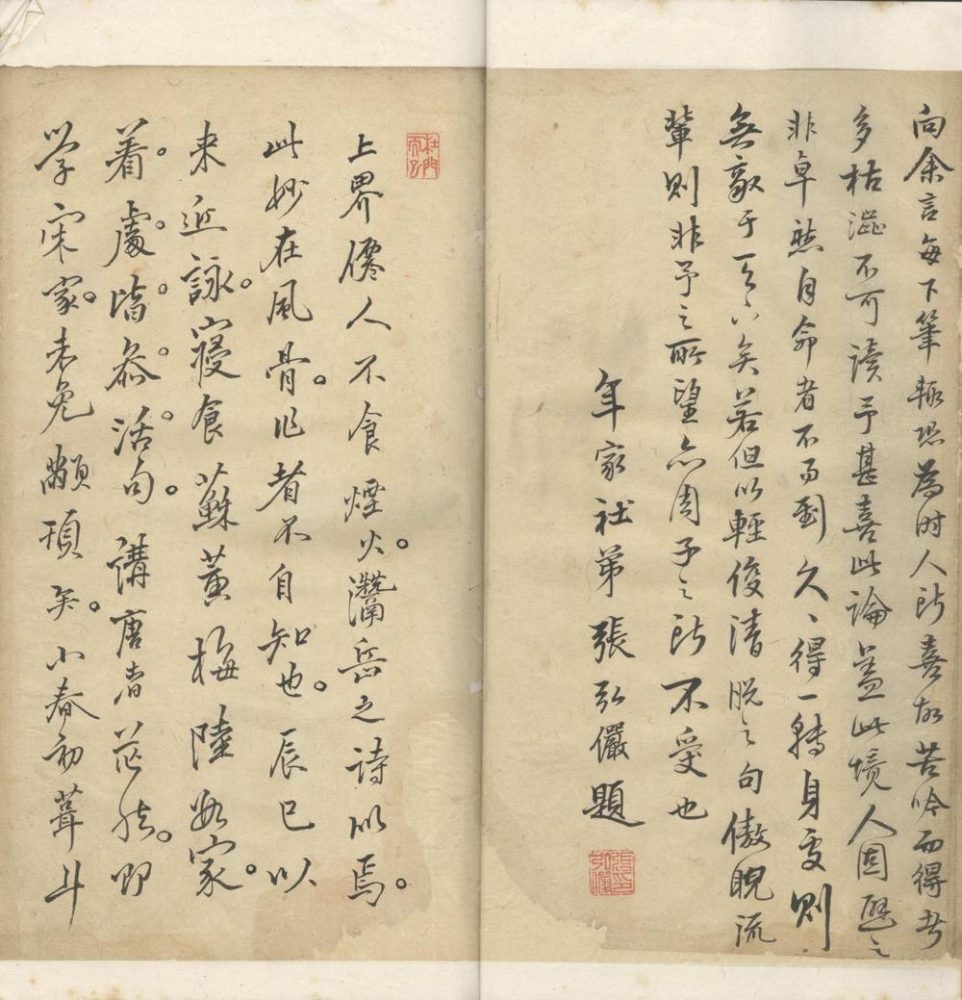 向余言每下筆輒恐為时人所喜故苦吟而得者
多枯澁不可讀予甚喜此論蓋此境人固歷之
非卓然自命者不易到久、得一轉身處則
無敵于天下矣若但以輕俊清脫之句傲睨流
輩則非予之所望亦周子之所不受也
年家社弟張弘儼題
上界僊人不食煙火。灊岳之詩似焉。
此妙在風骨。作者不自知也。辰巳以
来近詠。寝食蘇黃梅陸數家。
着。處。皆。參。活。句。講唐者茫然。即
学宋家。未免顢頇矣。小春初葺斗